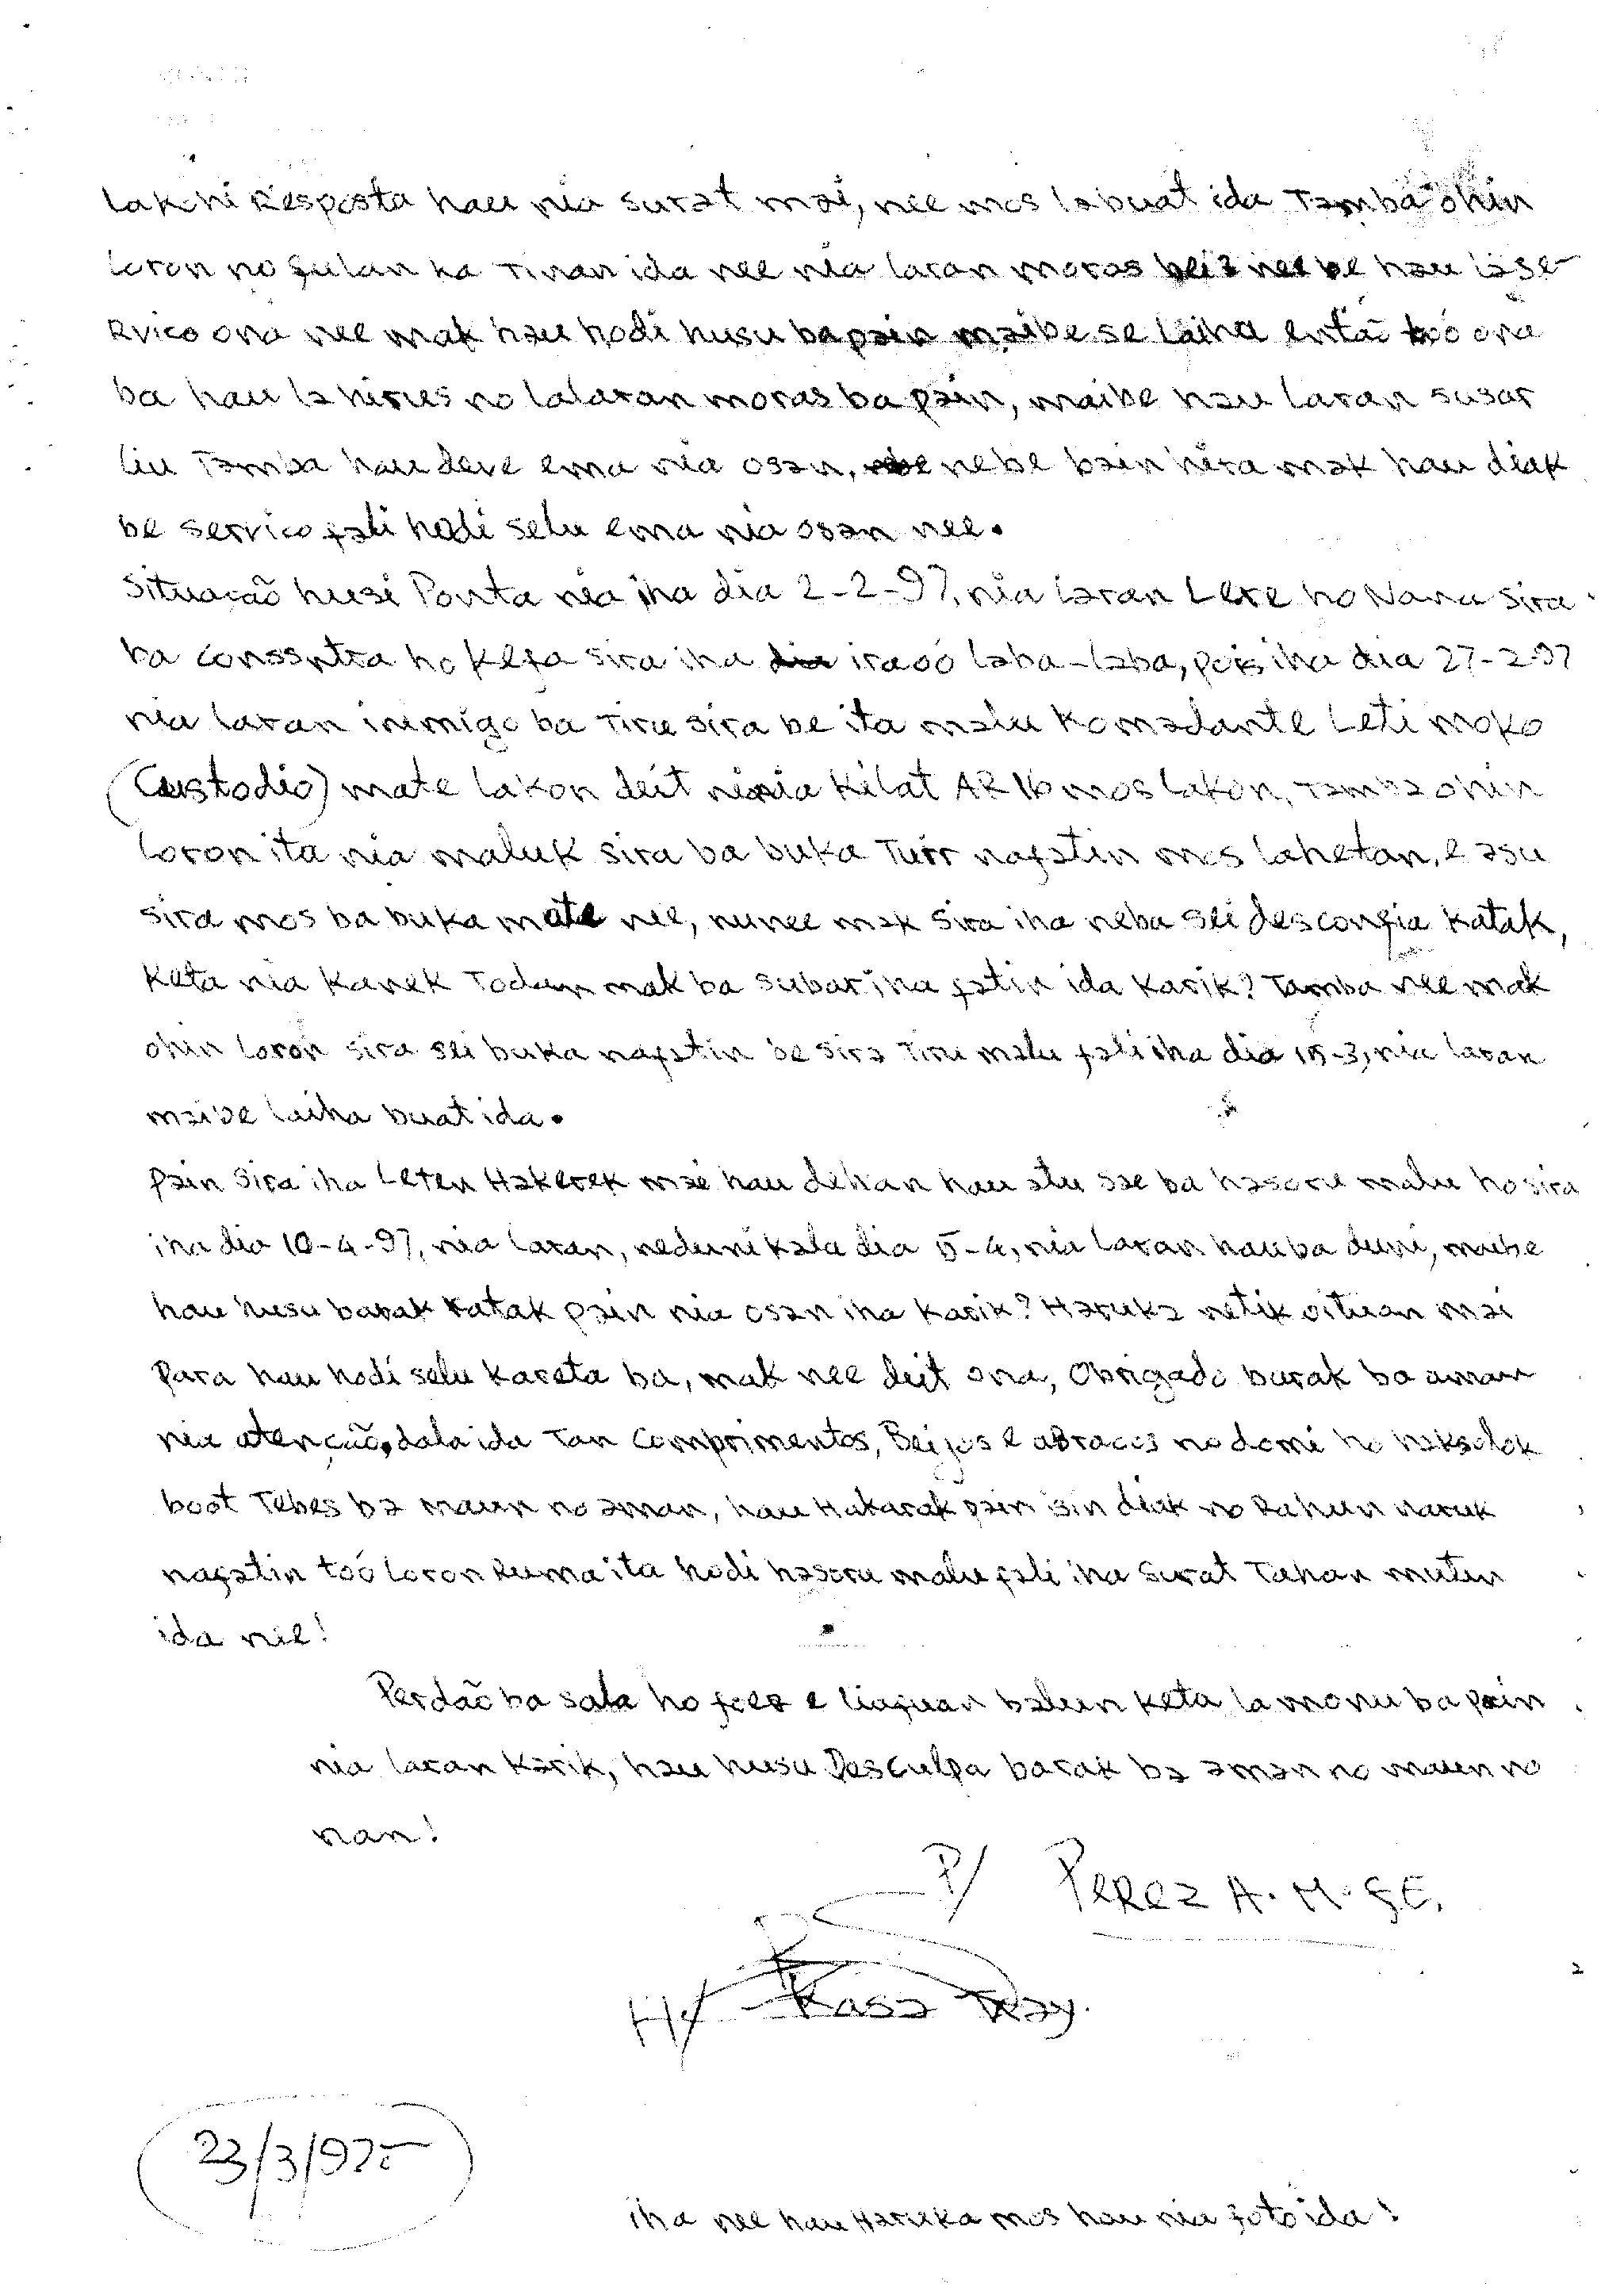 lakohi Resposta hau nia surat mai, nee mos labuat ida Tamba ohin
loron no fulan ka Tinan ida nee nia laran moras beiz nee be hau lase-
Rvico ona nee mak hau hodi husu ba pain maibe se laiha então too ona
ba hau la hirus no lalaran moras ba pain, maibe hau laran susar
liu Tamba hau deve ema nia osan, nebe bain hira mak hau diak
be servico fali hodi selu ema nia osan nee.
Situação husi Ponta nia iha dia 2-2-97, nia laran Lere ho Nanu Sira
ba conssntra ho Kefa sira iha iraoó laba-laba, pois iha dia 27-2-97
nia laran inimigo ba Tiru sira be ita malu Komadante Leti moko
(Custodio) mate lakon deit ninia Kilat AR16 mos lakon, Tamba ohin
loron ita nia maluk sira ba buka Tuir nafatin mos lahetan, e asu
sira mos ba buka mate nee, nunee mak Sira iha neba sei desconfia Katak,
Keta nia Kanek Todan mak ba subar iha fatin ida Karik? Tamba nee mak
ohin loron sira sei buka nafatin be sira Tiru malu fali iha dia 15-3, nia laran
maibe laiha buat ida.
Pain Sira iha Leten Hakerek mai hau dehan hau atu sae ba hasoru malu ho sira
iha dia 10-4-97, nia laran, neduni kala dia 5-4, nia laran hau ba duni, maibe
hau husu barak Katak pain nia osan iha Karik? Haruka netik oituan mai
Para hau hodi selu Kareta ba, mak nee deit ona, Obrigado barak ba aman
nia atencão, dala ida Tan Comprimentos, Beijos e abracos no domi ho haksolok
boot Tebes ba maun no aman, hau Hakarak pain isin diak no Rahun naruk
nafatin toó loron Ruma ita hodi hasoru malu fali iha Surat Tahan mutin
ida nee!
Perdão ba sala ho foer e liafuan balun keta la monu ba pain
nia laran Karik, hau husu Desculpa barak ba aman no maun no
nan!
P/ Perez A. M. F.E.
H/ Kasa Tray.
23/3/97
iha nee hau Haruka mos hau nia foto ida!